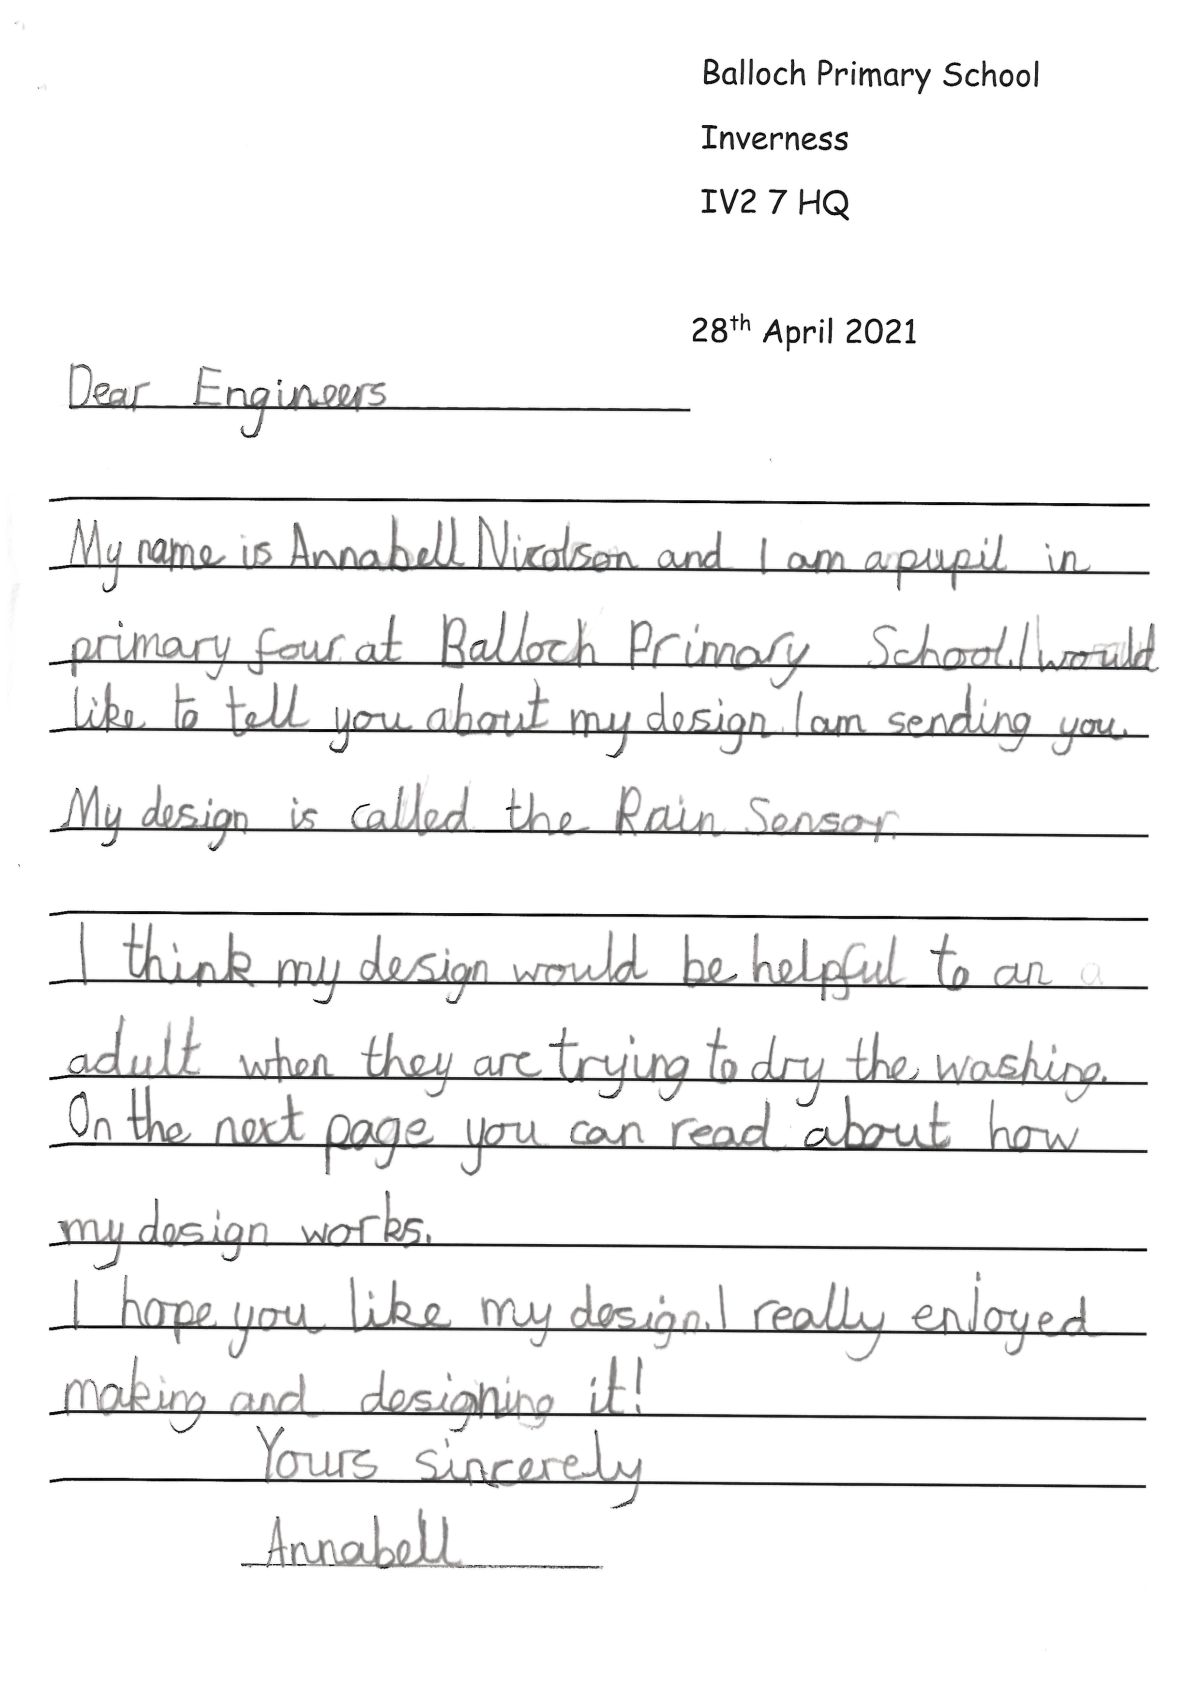 Balloch Primary School
Inverness
IV2 7 HQ
28th April 2021
Dear Engineers
My name is Annabell Nicolson and I am a pupil in
primary four at Balloch Primary School. I would
like to tell you about my design I am sending you.
My design is called the Rain Sensor.
I think my design would be helpful to an a
adult when they are trying to dry the washing.
On the next page you can read about how
my design works.
I hope you like my design. I really enjoyed
making and designing it!
Yours sincerely
Annabell